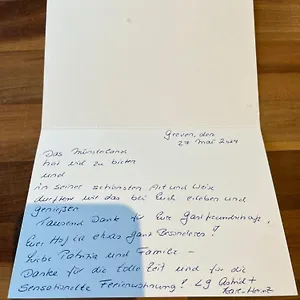 Greven, den
27. Mai 2024
Das Münsterland
hat viel zu bieten
und
in seiner schönsten Art und Weise
durften wir das bei Euch erleben und
genießen
Tausend Dank für Eure Gastfreundschaft,
Euer Hof ist etwas ganz Besonderes!
Liebe Patrizia und Familie -
Danke für die tolle Zeit und für die
Sensationelle Ferienwohnung! LG Astrid +